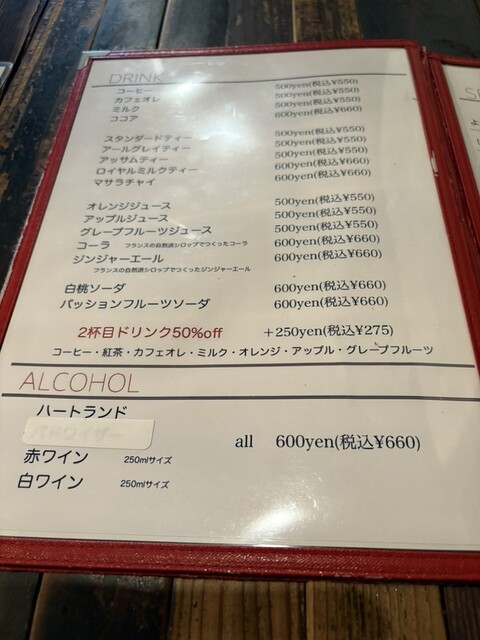 DRINK
コーヒー 500yen(税込¥550)
カフェオレ 500yen(税込¥550)
ミルク 500yen(税込¥550)
ココア 600yen(税込¥660)
スタンダードティー 500yen(税込¥550)
アールグレイティー 500yen(税込¥550)
アッサムティー 500yen(税込¥550)
ロイヤルミルクティー 600yen(税込¥660)
マサラチャイ 600yen(税込¥660)
オレンジジュース 500yen(税込¥550)
アップルジュース 500yen(税込¥550)
グレープフルーツジュース 500yen(税込¥550)
コーラ フランスの自然派シロップでつくったコーラ 600yen(税込¥660)
ジンジャーエール 600yen(税込¥660)
フランスの自然派シロップでつくったジンジャーエール
白桃ソーダ 600yen(税込¥660)
パッションフルーツソーダ 600yen(税込¥660)
2杯目ドリンク50%off +250yen(税込¥275)
コーヒー・紅茶・カフェオレ・ミルク・オレンジ・アップル・グレープフルーツ
ALCOHOL
ハートランド
バドワイザー
all 600yen(税込¥660)
赤ワイン 250mlサイズ
白ワイン 250mlサイズ